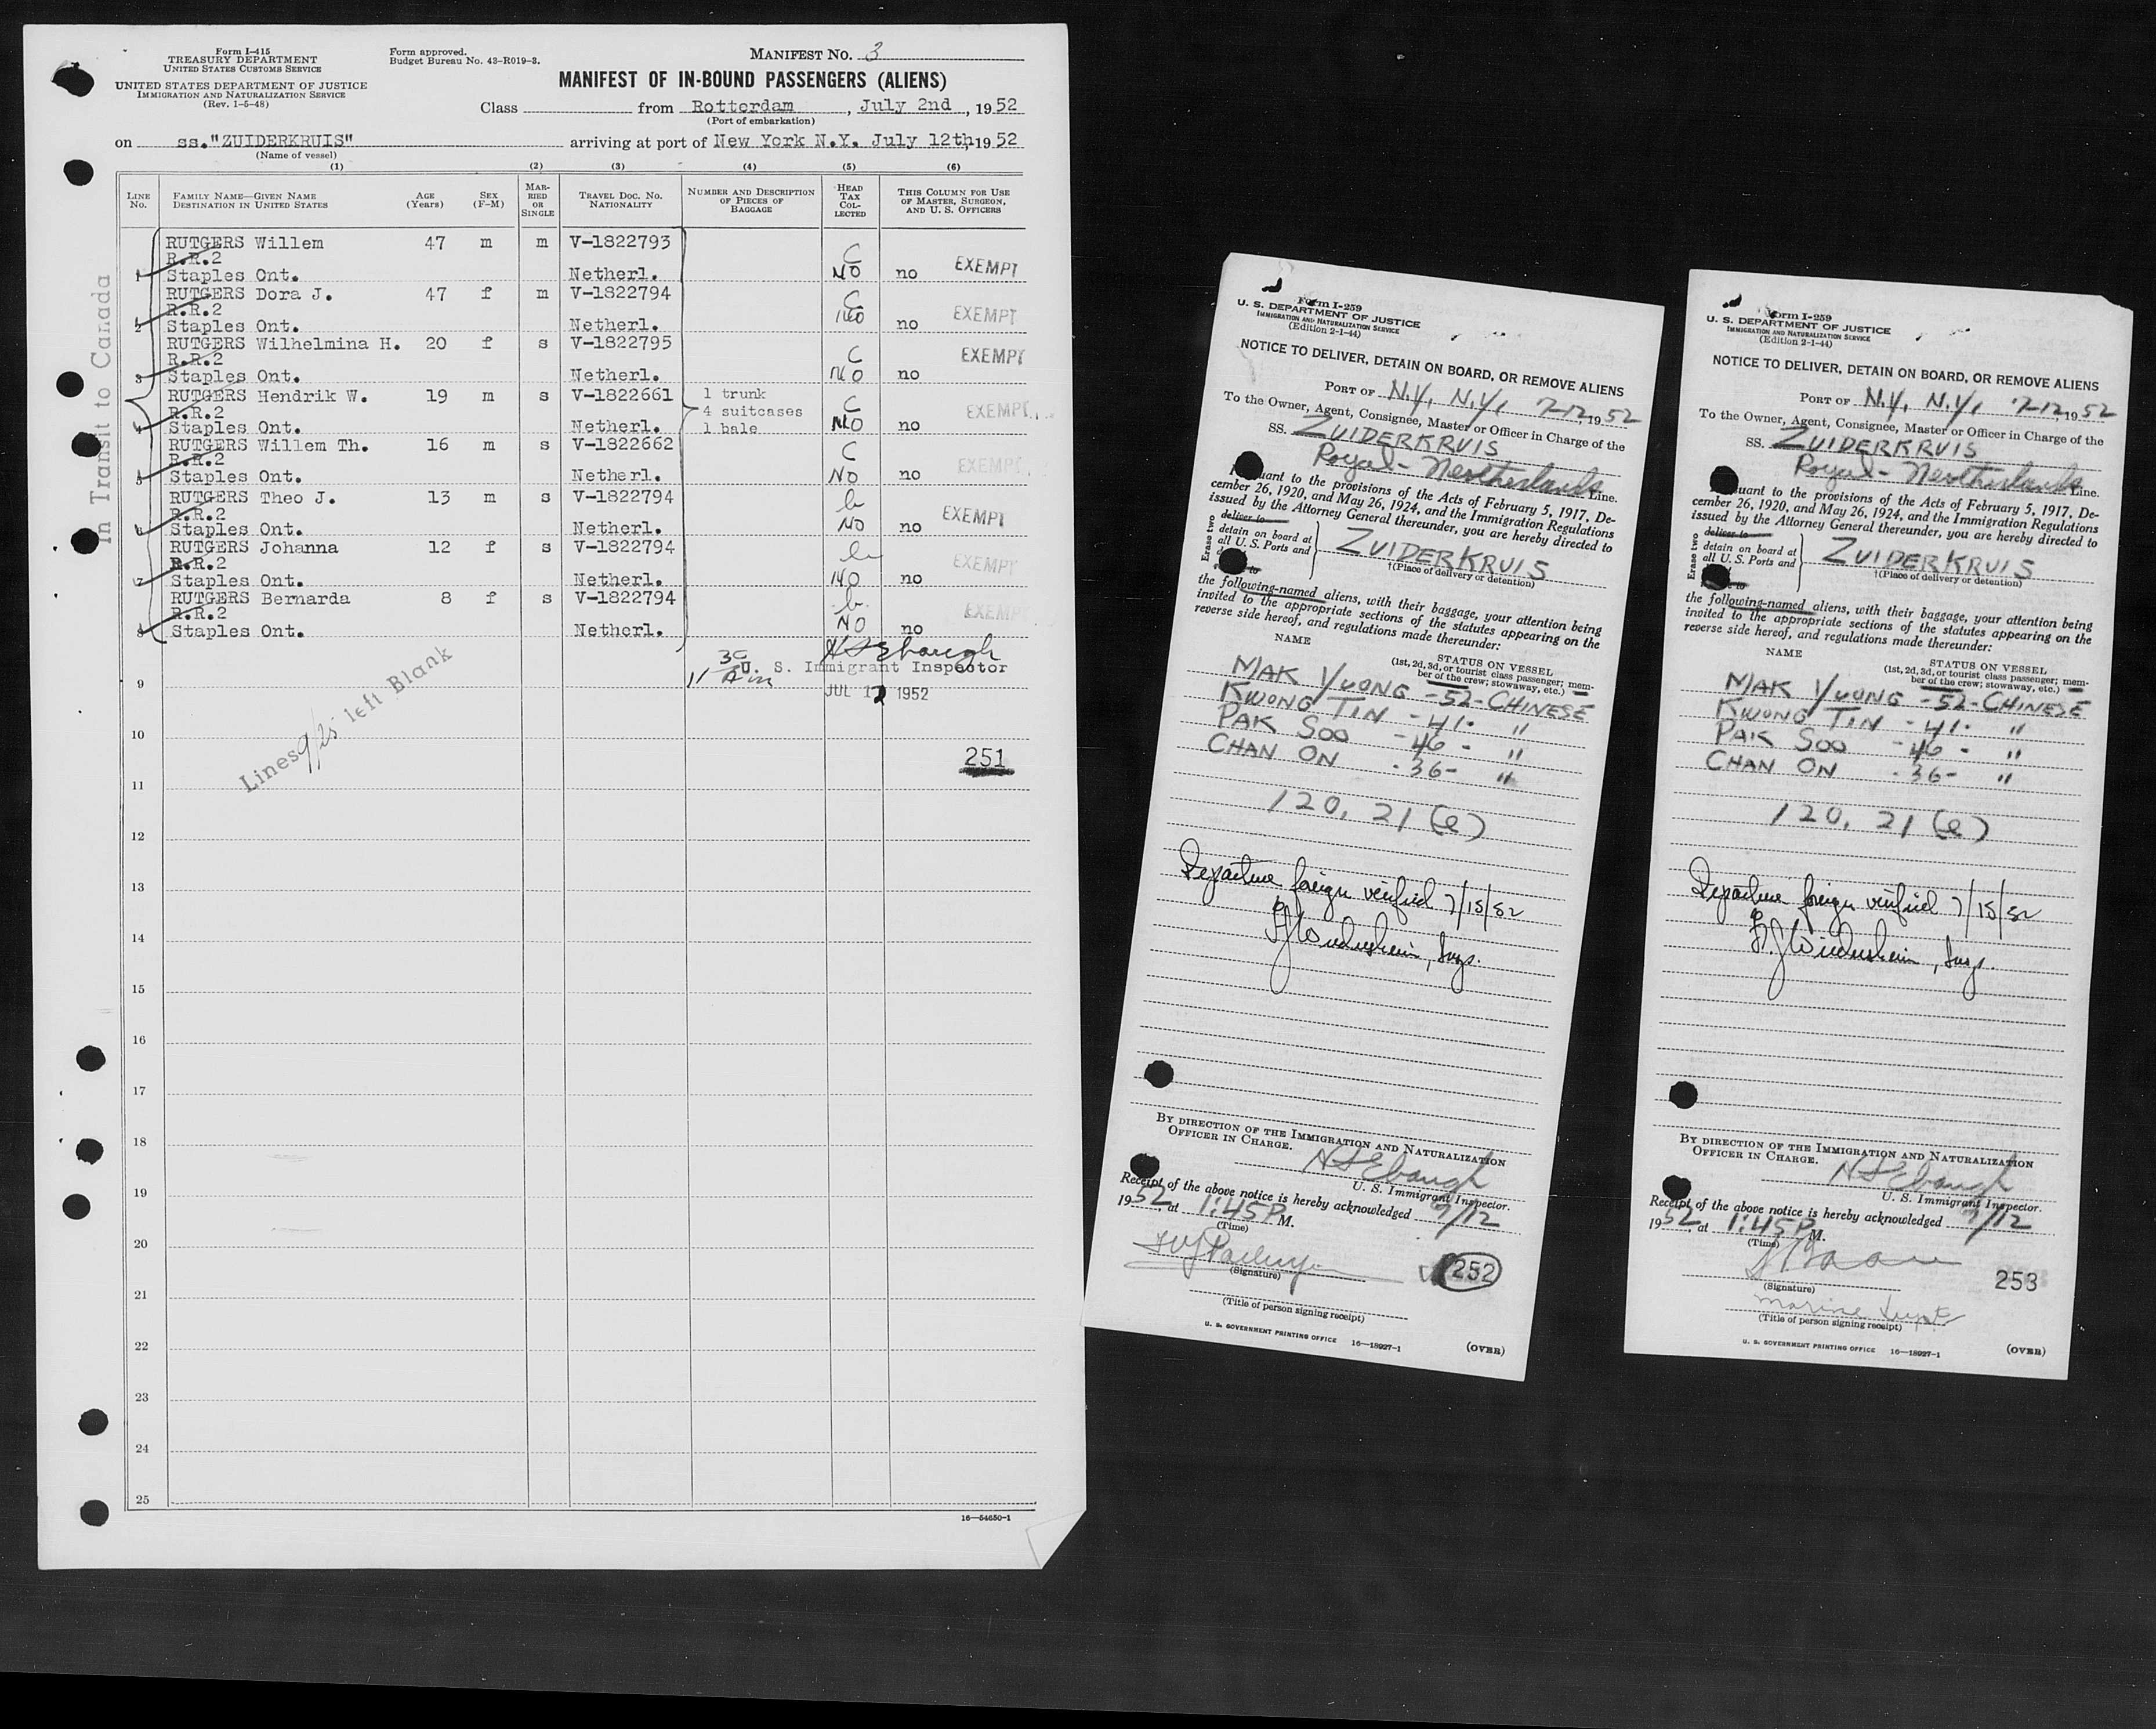 Form I-415
TREASURY DEPARTMENT
UNITED STATES CUSTOMS SERVICE
UNITED STATES DEPARTMENT OF JUSTICE
IMMIGRATION AND NATURALIZATION SERVICE
(Rev. 1-5-48)
Form approved.
Budget Bureau No. 43-R019-3.
MANIFEST NO. 3
MANIFEST OF IN-BOUND PASSENGERS (ALIENS)
Class from Rotterdam, July 2nd, 1952
(Port of embarkation)
on ss."ZUIDERKRUIS" arriving at port of New York N.Y. July 12th, 1952
(Name of vessel)
(1) (2) (3) (4) (5) (6)
LINE NO.
FAMILY NAME—GIVEN NAME
DESTINATION IN UNITED STATES
AGE (Years)
SEX (F-M)
MARRIED OR SINGLE
TRAVEL DOC. NO. NATIONALITY
NUMBER AND DESCRIPTION OF PIECES OF BAGGAGE
HEAD TAX COLLECTED
THIS COLUMN FOR USE OF MASTER, SURGEON, AND U. S. OFFICERS
In Transit to Canada
RUTGERS Willem 47 m m V-1822793 C
R.R.2
1 Staples Ont. Netherl. NO no EXEMPT
RUTGERS Dora J. 47 f m V-1822794 C
R.R.2
2 Staples Ont. Netherl. NO no EXEMPT
RUTGERS Wilhelmina H. 20 f s V-1822795 C
R.R.2
3 Staples Ont. Netherl. NO no EXEMPT
RUTGERS Hendrik W. 19 m s V-1822661 1 trunk C
R.R.2 4 suitcases EXEMPT
4 Staples Ont. Netherl. 1 bale NO no
RUTGERS Willem Th. 16 m s V-1822662 C
R.R.2
5 Staples Ont. Netherl. NO no EXEMPT
RUTGERS Theo J. 13 m s V-1822794 b
R.R.2
6 Staples Ont. Netherl. NO no EXEMPT
RUTGERS Johanna 12 f s V-1822794 b
R.R.2
7 Staples Ont. Netherl. NO no EXEMPT
RUTGERS Bernarda 8 f s V-1822794 b
R.R.2
8 Staples Ont. Netherl. NO no EXEMPT
H S Ebaugh
U. S. Immigrant Inspector
JUL 12 1952
Lines 9/25 left Blank
251
9
10
11
12
13
14
15
16
17
18
19
20
21
22
23
24
25
16—54650-1
Form I-259
U. S. DEPARTMENT OF JUSTICE
IMMIGRATION AND NATURALIZATION SERVICE
(Edition 2-1-44)
NOTICE TO DELIVER, DETAIN ON BOARD, OR REMOVE ALIENS
PORT OF N.Y., N.Y., 7-12, 1952
To the Owner, Agent, Consignee, Master or Officer in Charge of the
SS. ZUIDERKRUIS
Royal-Neetherlands Line.
uant to the provisions of the Acts of February 5, 1917, De-
cember 26, 1920, and May 26, 1924, and the Immigration Regulations
issued by the Attorney General thereunder, you are hereby directed to
Erase two
deliver to
detain on board at
all U. S. Ports and
ZUIDERKRUIS
†(Place of delivery or detention)
the following-named aliens, with their baggage, your attention being
invited to the appropriate sections of the statutes appearing on the
reverse side hereof, and regulations made thereunder:
NAME
STATUS ON VESSEL
(1st, 2d, 3d, or tourist class passenger; mem-
ber of the crew; stowaway, etc.)
MAK YUONG -52- CHINESE
KWONG TIN -41- "
PAK SOO -46- "
CHAN ON -36- "
120, 21 (e)
Departure foreign verified 7/15/52
BY DIRECTION OF THE IMMIGRATION AND NATURALIZATION
OFFICER IN CHARGE.
H S Ebaugh
U. S. Immigrant Inspector.
Receipt of the above notice is hereby acknowledged 7/12
1952, at 1:45 P M.
(Time)
(Signature)
252
(Title of person signing receipt)
U. S. GOVERNMENT PRINTING OFFICE 16—18927-1
(OVER)
Form I-259
U. S. DEPARTMENT OF JUSTICE
IMMIGRATION AND NATURALIZATION SERVICE
(Edition 2-1-44)
NOTICE TO DELIVER, DETAIN ON BOARD, OR REMOVE ALIENS
PORT OF N.Y., N.Y., 7-12, 1952
To the Owner, Agent, Consignee, Master or Officer in Charge of the
SS. ZUIDERKRUIS
Royal-Neetherlands Line.
uant to the provisions of the Acts of February 5, 1917, De-
cember 26, 1920, and May 26, 1924, and the Immigration Regulations
issued by the Attorney General thereunder, you are hereby directed to
Erase two
deliver to
detain on board at
all U. S. Ports and
to
ZUIDERKRUIS
†(Place of delivery or detention)
the following-named aliens, with their baggage, your attention being
invited to the appropriate sections of the statutes appearing on the
reverse side hereof, and regulations made thereunder:
NAME
STATUS ON VESSEL
(1st, 2d, 3d, or tourist class passenger; mem-
ber of the crew; stowaway, etc.)
MAK YUONG -52- CHINESE
KWONG TIN -41- "
PAK SOO -46- "
CHAN ON -36- "
120, 21 (e)
Departure foreign verified 7/15/52
BY DIRECTION OF THE IMMIGRATION AND NATURALIZATION
OFFICER IN CHARGE.
H S Ebaugh
U. S. Immigrant Inspector.
Receipt of the above notice is hereby acknowledged 7/12
1952, at 1:45 P M.
(Time)
(Signature)
253
Marine Supt
(Title of person signing receipt)
U. S. GOVERNMENT PRINTING OFFICE 16—18927-1
(OVER)